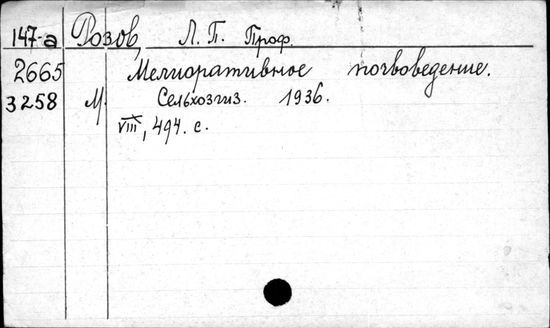 147-а Розов, Л. П. Проф.
2665 Мелиоративное почвоведение.
3258 М. Сельхозгиз. 1936.
VIII, 494. с.